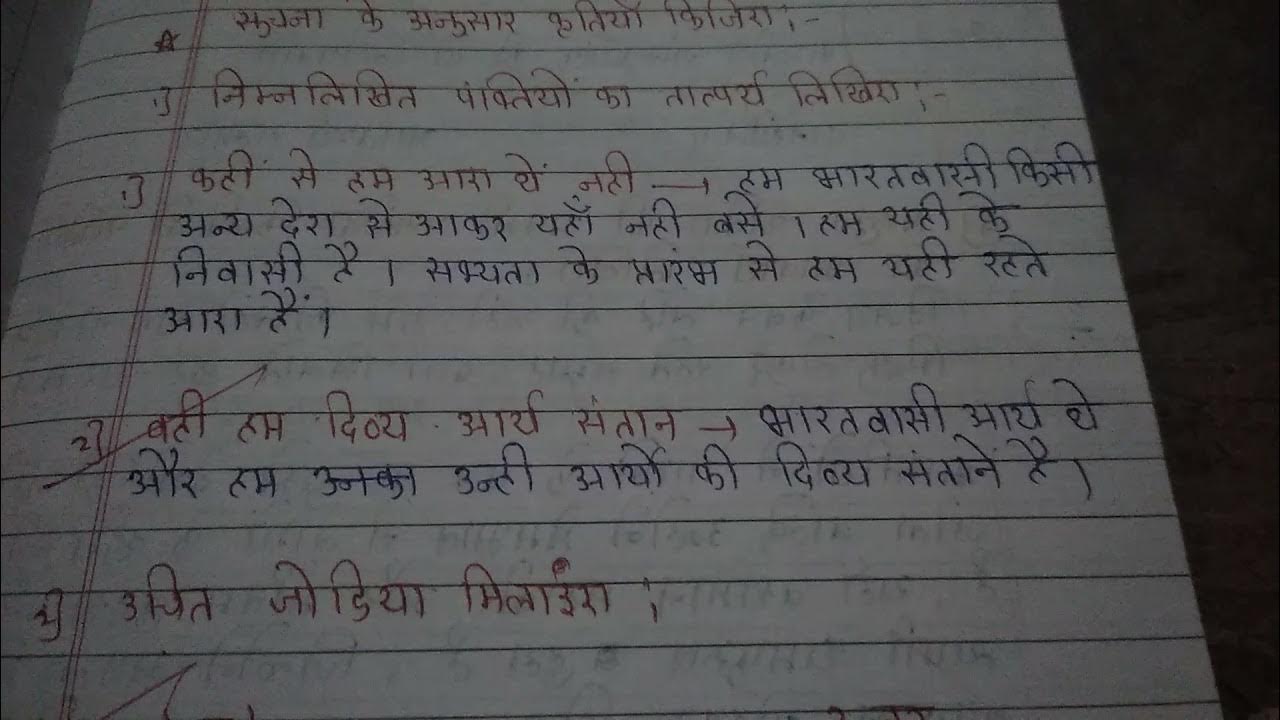 सुचना के अनुसार कृतियाँ किजिए :-
1) निम्नलिखित पंक्तियों का तात्पर्य लिखिए :-
1) कहीं से हम आए थें नही → हम भारतवासी किसी
अन्य देश से आकर यहाँ नही बसे । हम यही के
निवासी है । सभ्यता के प्रारंभ से हम यही रहते
आए हैं ।
2) वही हम दिव्य आर्य संतान → भारतवासी आर्य थे
और हम उनका उन्ही आर्यो की दिव्य संताने है ।
2) उचित जोडिया मिलाईए :